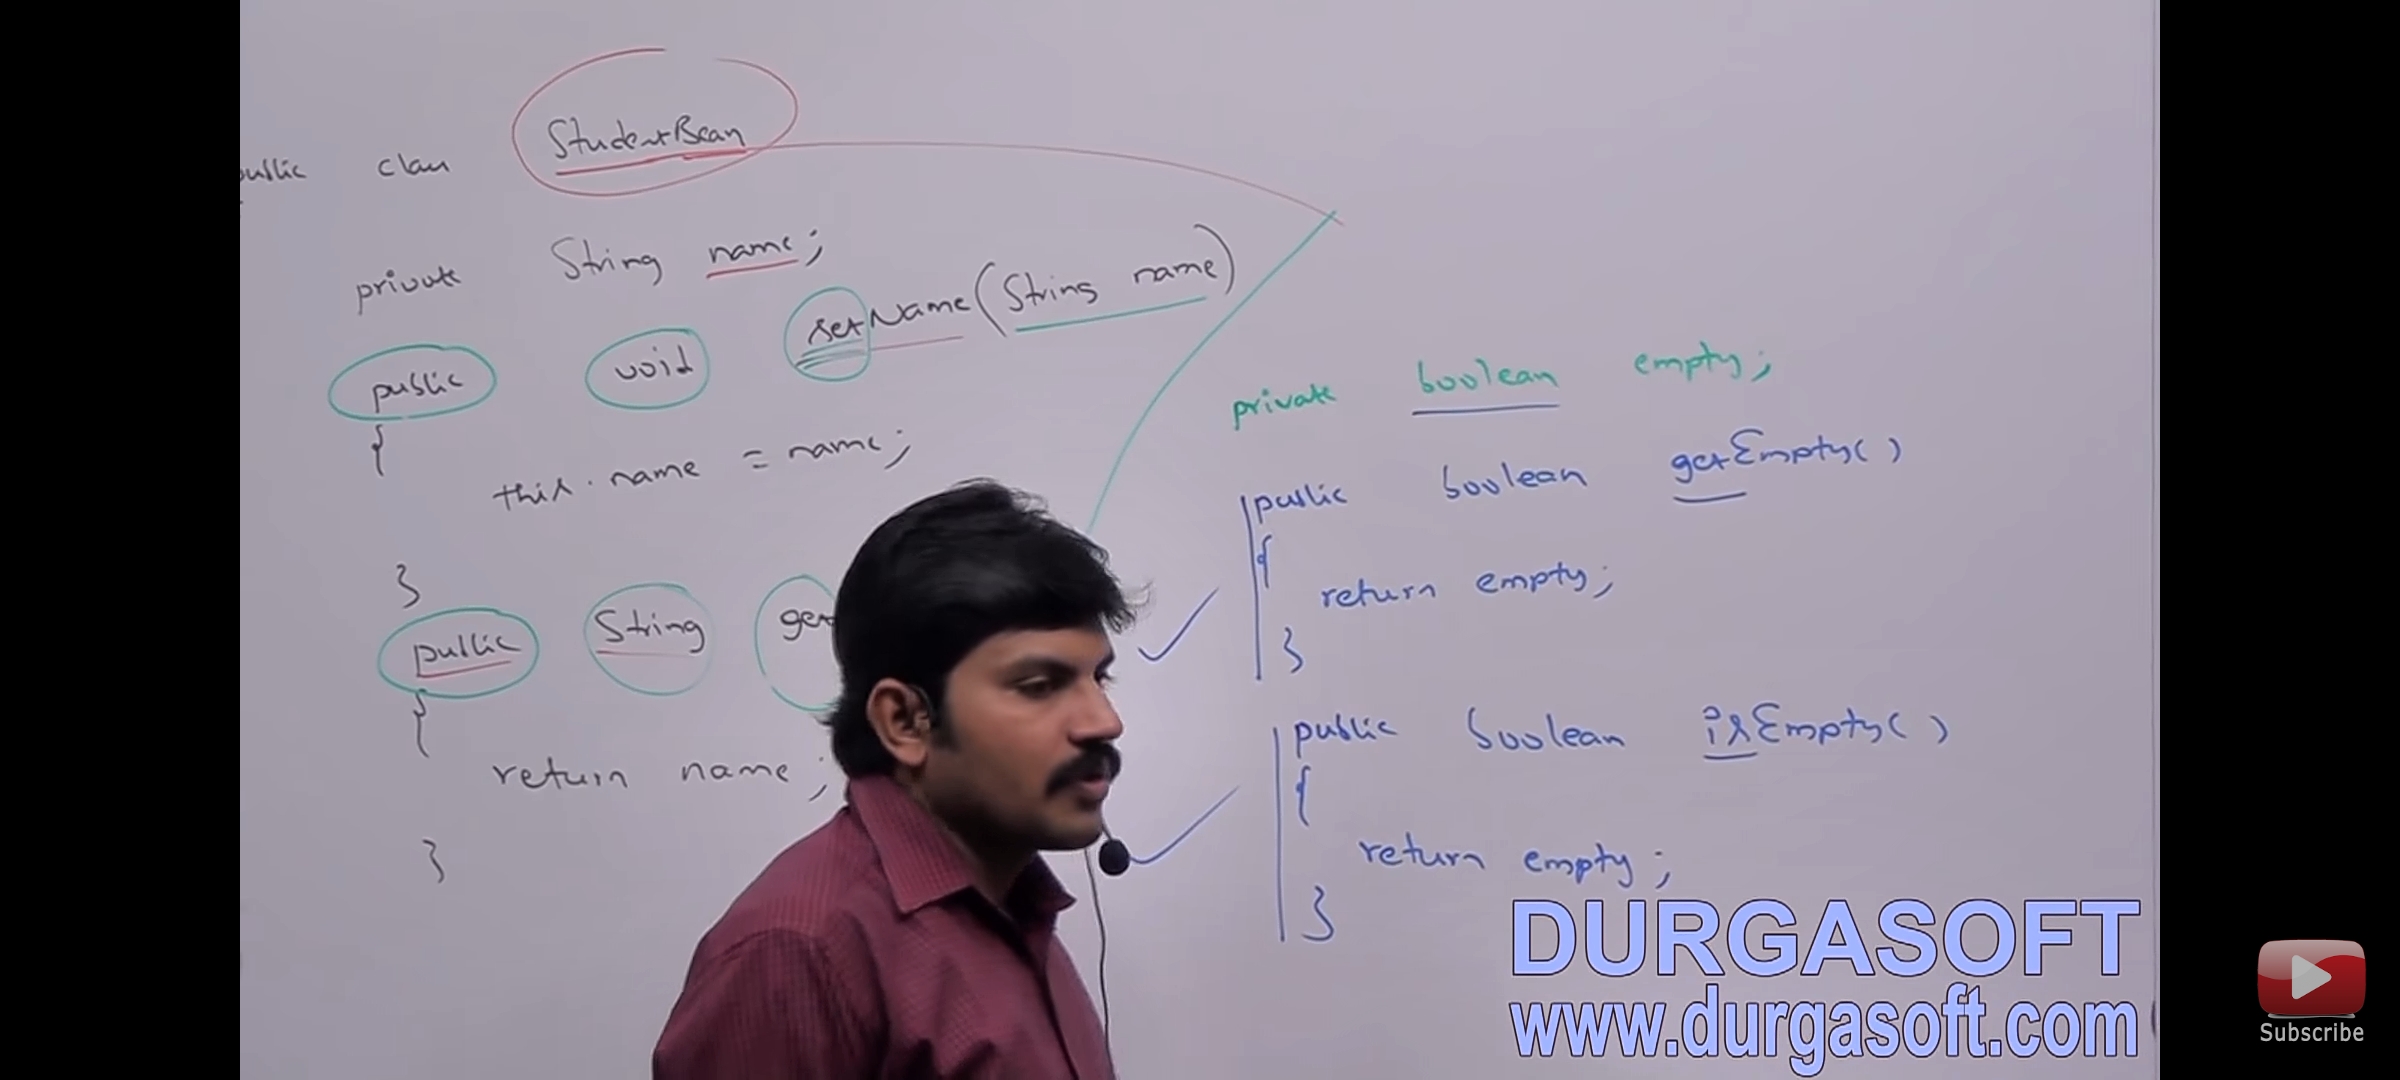 public class StudentBean
private String name;
public void setName(String name)
{
this.name = name;
}
public String get
{
return name;
}
private boolean empty;
public boolean getEmpty()
{
return empty;
}
public boolean isEmpty()
{
return empty;
}
DURGASOFT
www.durgasoft.com
Subscribe